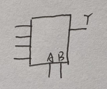 Y
A B